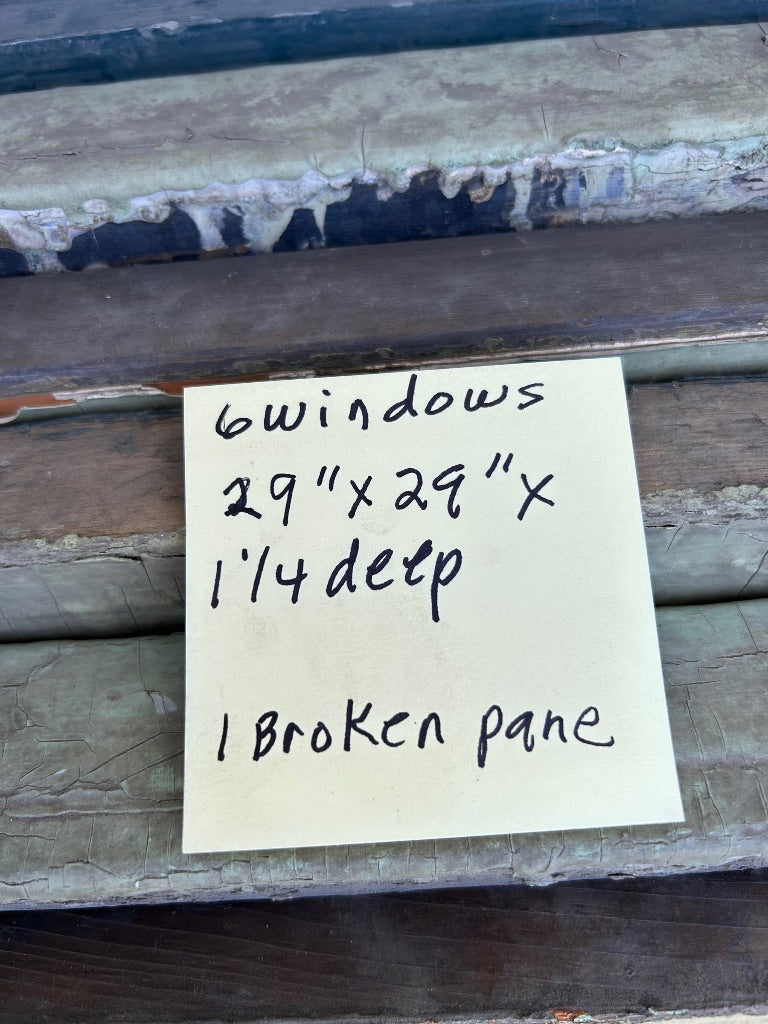 6 windows
29" x 29" x
1 1/4 deep
1 Broken pane